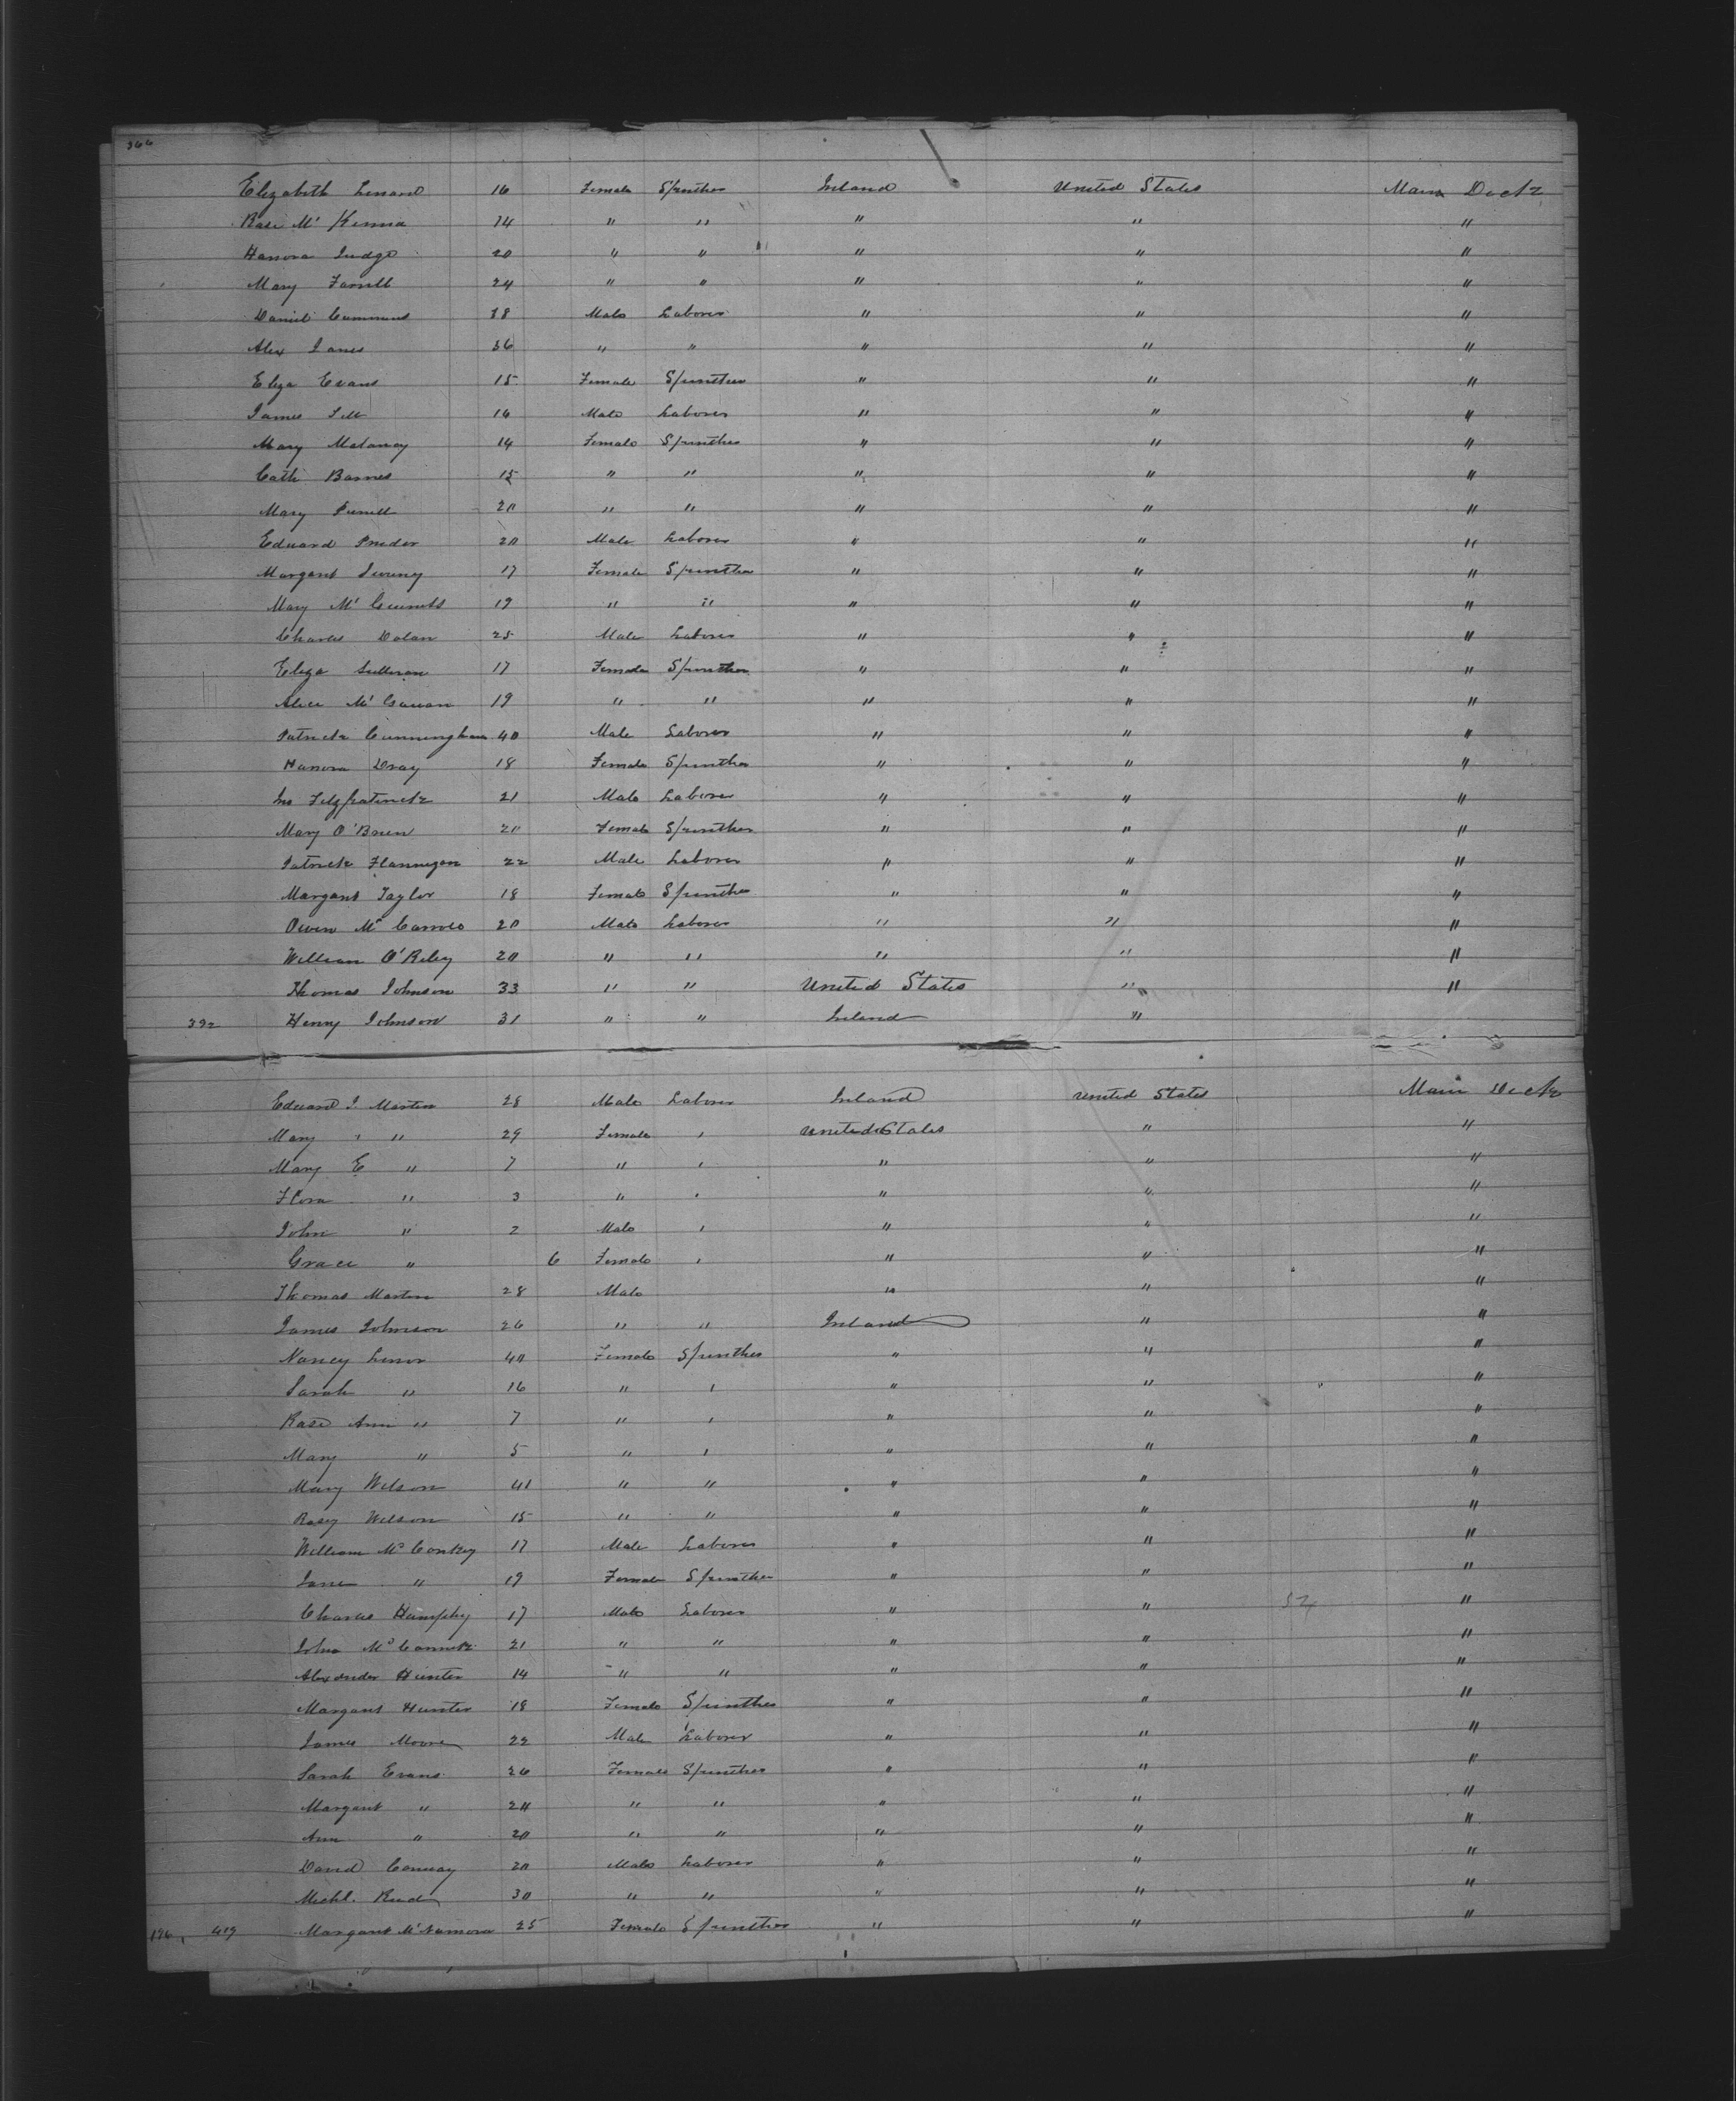 366
Elizabeth Lenard 16 Female Spinther Ireland United States Main Deck
Rose Mc Kenna 14 " " " " "
Hanora Judge 20 " " " " "
Mary Farrell 24 " " " " "
Daniel Cummins 18 Male Laborer " " "
Alex Janes 36 " " " " "
Eliza Evans 15 Female Spinther " " "
James 16 Male Laborer " " "
Mary Melancy 14 Female Spinther " " "
Cath Barnes 15 " " " " "
Mary 20 " " " " "
Edward 20 Male Laborer " " "
Margaret Sweeny 17 Female Spinther " " "
Mary Mc 19 " " " " "
Charles Dolan 25 Male Laborer " " "
Eliza Sullivan 17 Female Spinther " " "
Alice Mc Gowan 19 " " " " "
Patrick Cunningham 40 Male Laborer " " "
Hanora Dray 18 Female Spinther " " "
Jno Fitzpatrick 21 Male Laborer " " "
Mary O'Brien 20 Female Spinther " " "
Patrick Flannigan 22 Male Laborer " " "
Margaret Taylor 18 Female Spinther " " "
Owen Mc 20 Male Laborer " " "
William O'Riley 20 " " " " "
Thomas Johnson 33 " " United States " "
392 Henry Johnson 31 " " Ireland "
Edward J. Martin 28 Male Laborer Ireland United States Main Deck
Mary " " 29 Female " United States " "
Mary E " 7 " " " " "
Flora " 3 " " " " "
John " 2 Male " " " "
Grace " 6 Female " " " "
Thomas Martin 28 Male " " "
James Johnson 26 " " Ireland " "
Nancy Lenox 40 Female Spinther " " "
Sarah " 16 " " " " "
Rose Ann " 7 " " " " "
Mary " 5 " " " " "
Mary Wilson 41 " " " " "
Rosey Wilson 15 " " " " "
William Mc Conkey 17 Male Laborer " " "
Jane " 19 Female Spinther " " "
Charles Humphy 17 Male Laborer " " "
John Mc 21 " " " " "
Alexander Hunter 14 " " " " "
Margaret Hunter 18 Female Spinther " " "
James Moore 22 Male Laborer " " "
Sarah Evans 26 Female Spinther " " "
Margaret " 24 " " " " "
Ann " 20 " " " " "
David Conway 20 Male Laborer " " "
Michl. 30 " " " " "
196 419 Margaret McNamara 25 Female Spinther " " "